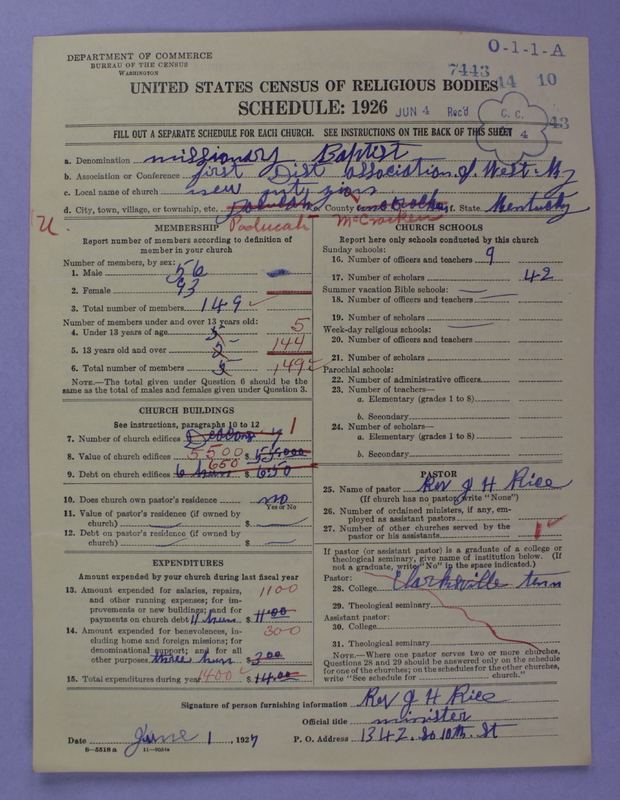 DEPARTMENT OF COMMERCE
BUREAU OF THE CENSUS
WASHINGTON
O-1-1-A
7443 14 10
UNITED STATES CENSUS OF RELIGIOUS BODIES
SCHEDULE: 1926 JUN 4 Rec'd C. C. 4 43
FILL OUT A SEPARATE SCHEDULE FOR EACH CHURCH. SEE INSTRUCTIONS ON THE BACK OF THIS SHEET
a. Denomination missionary Baptist
b. Association or Conference first Dist association of West Ky
c. Local name of church new
d. City, town, village, or township, etc. County f. State Kentucky
Paducah McCracken
MEMBERSHIP
Report number of members according to definition of member in your church
Number of members, by sex:
1. Male 56
2. Female 93
3. Total number of members 149
Number of members under and over 13 years old:
4. Under 13 years of age 5
5. 13 years old and over 144
6. Total number of members 149
NOTE.—The total given under Question 6 should be the same as the total of males and females given under Question 3.
CHURCH BUILDINGS
See instructions, paragraphs 10 to 12
7. Number of church edifices 1
8. Value of church edifices 5500 $
9. Debt on church edifices 650 $ 650
10. Does church own pastor's residence no
Yes or No
11. Value of pastor's residence (if owned by church) $
12. Debt on pastor's residence (if owned by church) $
EXPENDITURES
Amount expended by your church during last fiscal year
13. Amount expended for salaries, repairs, and other running expenses; for improvements or new buildings; and for payments on church debt 11 hun $ 1100
1100
14. Amount expended for benevolences, including home and foreign missions; for denominational support; and for all other purposes three hun $ 300
300
15. Total expenditures during year 1400 $ 1400
CHURCH SCHOOLS
Report here only schools conducted by this church
Sunday schools:
16. Number of officers and teachers 9
17. Number of scholars 42
Summer vacation Bible schools:
18. Number of officers and teachers
19. Number of scholars
Week-day religious schools:
20. Number of officers and teachers
21. Number of scholars
Parochial schools:
22. Number of administrative officers
23. Number of teachers—
a. Elementary (grades 1 to 8)
b. Secondary
24. Number of scholars—
a. Elementary (grades 1 to 8)
b. Secondary
PASTOR
25. Name of pastor Rev J H Rice
(If church has no pastor, write "None")
26. Number of ordained ministers, if any, employed as assistant pastors
27. Number of other churches served by the pastor or his assistants 1
If pastor (or assistant pastor) is a graduate of a college or theological seminary, give name of institution below. (If not a graduate, write "No" in the space indicated.)
Pastor:
28. College Clarksville tenn
29. Theological seminary
Assistant pastor:
30. College
31. Theological seminary
NOTE.—Where one pastor serves two or more churches, Questions 28 and 29 should be answered only on the schedule for one of the churches; on the schedules for the other churches, write "See schedule for church."
Signature of person furnishing information Rev J H Rice
Official title minister
Date June 1, 1927 P. O. Address 1342. So 10th. St
8—5518 a 11—9051a